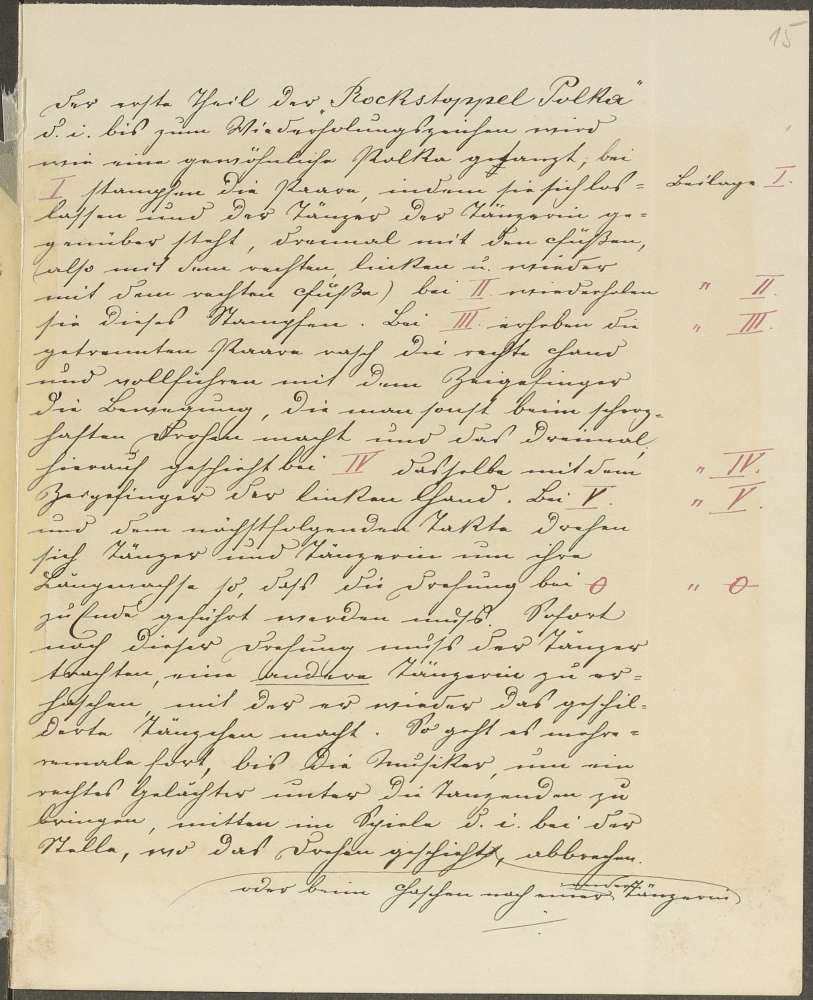 15
Der erste Theil der „Rockstoppel Polka"
d. i. bis zum Wiederholungszeichen wird
wie eine gewöhnliche Polka getanzt; bei
I stampfen die Paare, indem sie sich los= Beilage I.
lassen und der Tänzer der Tänzerin ge=
genüber steht, dreimal mit den Füßen,
(also mit dem rechten, linken u. wieder
mit dem rechten Fuße) bei II. wiederholen " II.
sie dieses Stampfen. Bei III. erheben die " III.
getrennten Paare rasch die rechte Hand
und vollführen mit dem Zeigefinger
die Bewegung, die man sonst beim scherz=
haften Drohen macht und das dreimal,
hierauf geschieht bei IV dasselbe mit dem " IV.
Zeigefinger der linken Hand. Bei V. " V.
und dem nächstfolgenden Takte drehen
sich Tänzer und Tänzerin um ihre
Längenachse so, dass die Drehung bei 0 " 0
zu Ende geführt werden muß. Sofort
nach dieser Drehung muß der Tänzer
trachten, eine andere Tänzerin zu er=
haschen, mit der er wieder das geschil=
derte Tänzchen macht. So geht es mehre=
remale fort, bis die Musiker, um ein
rechtes Gelächter unter die Tanzenden zu
bringen, mitten im Spiele d. i. bei der
Stelle, wo das Drehen geschieht, abbrechen.
oder beim Haschen nach einer andern Tänzerin